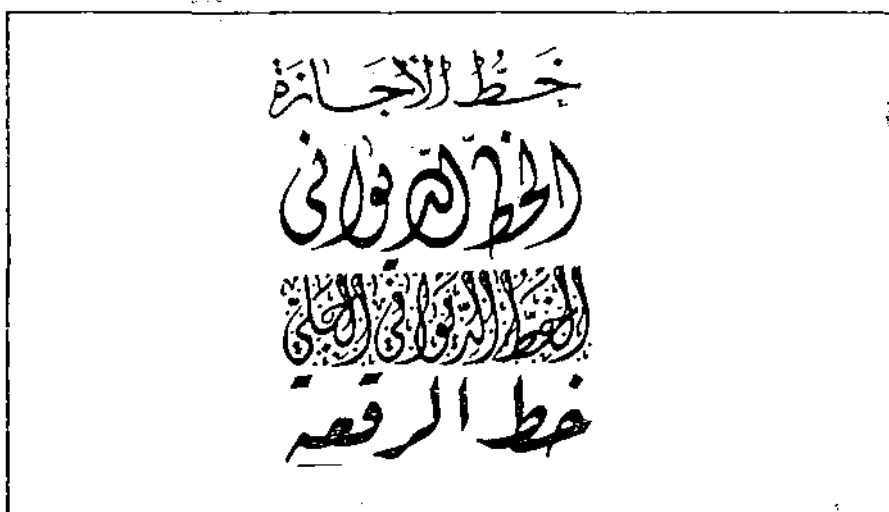 خَطُّ الْأجَازَة
الخطّ الدّيواني
الخَطُّ الدِّيوَانِي الجَلِي
خط الرقعة